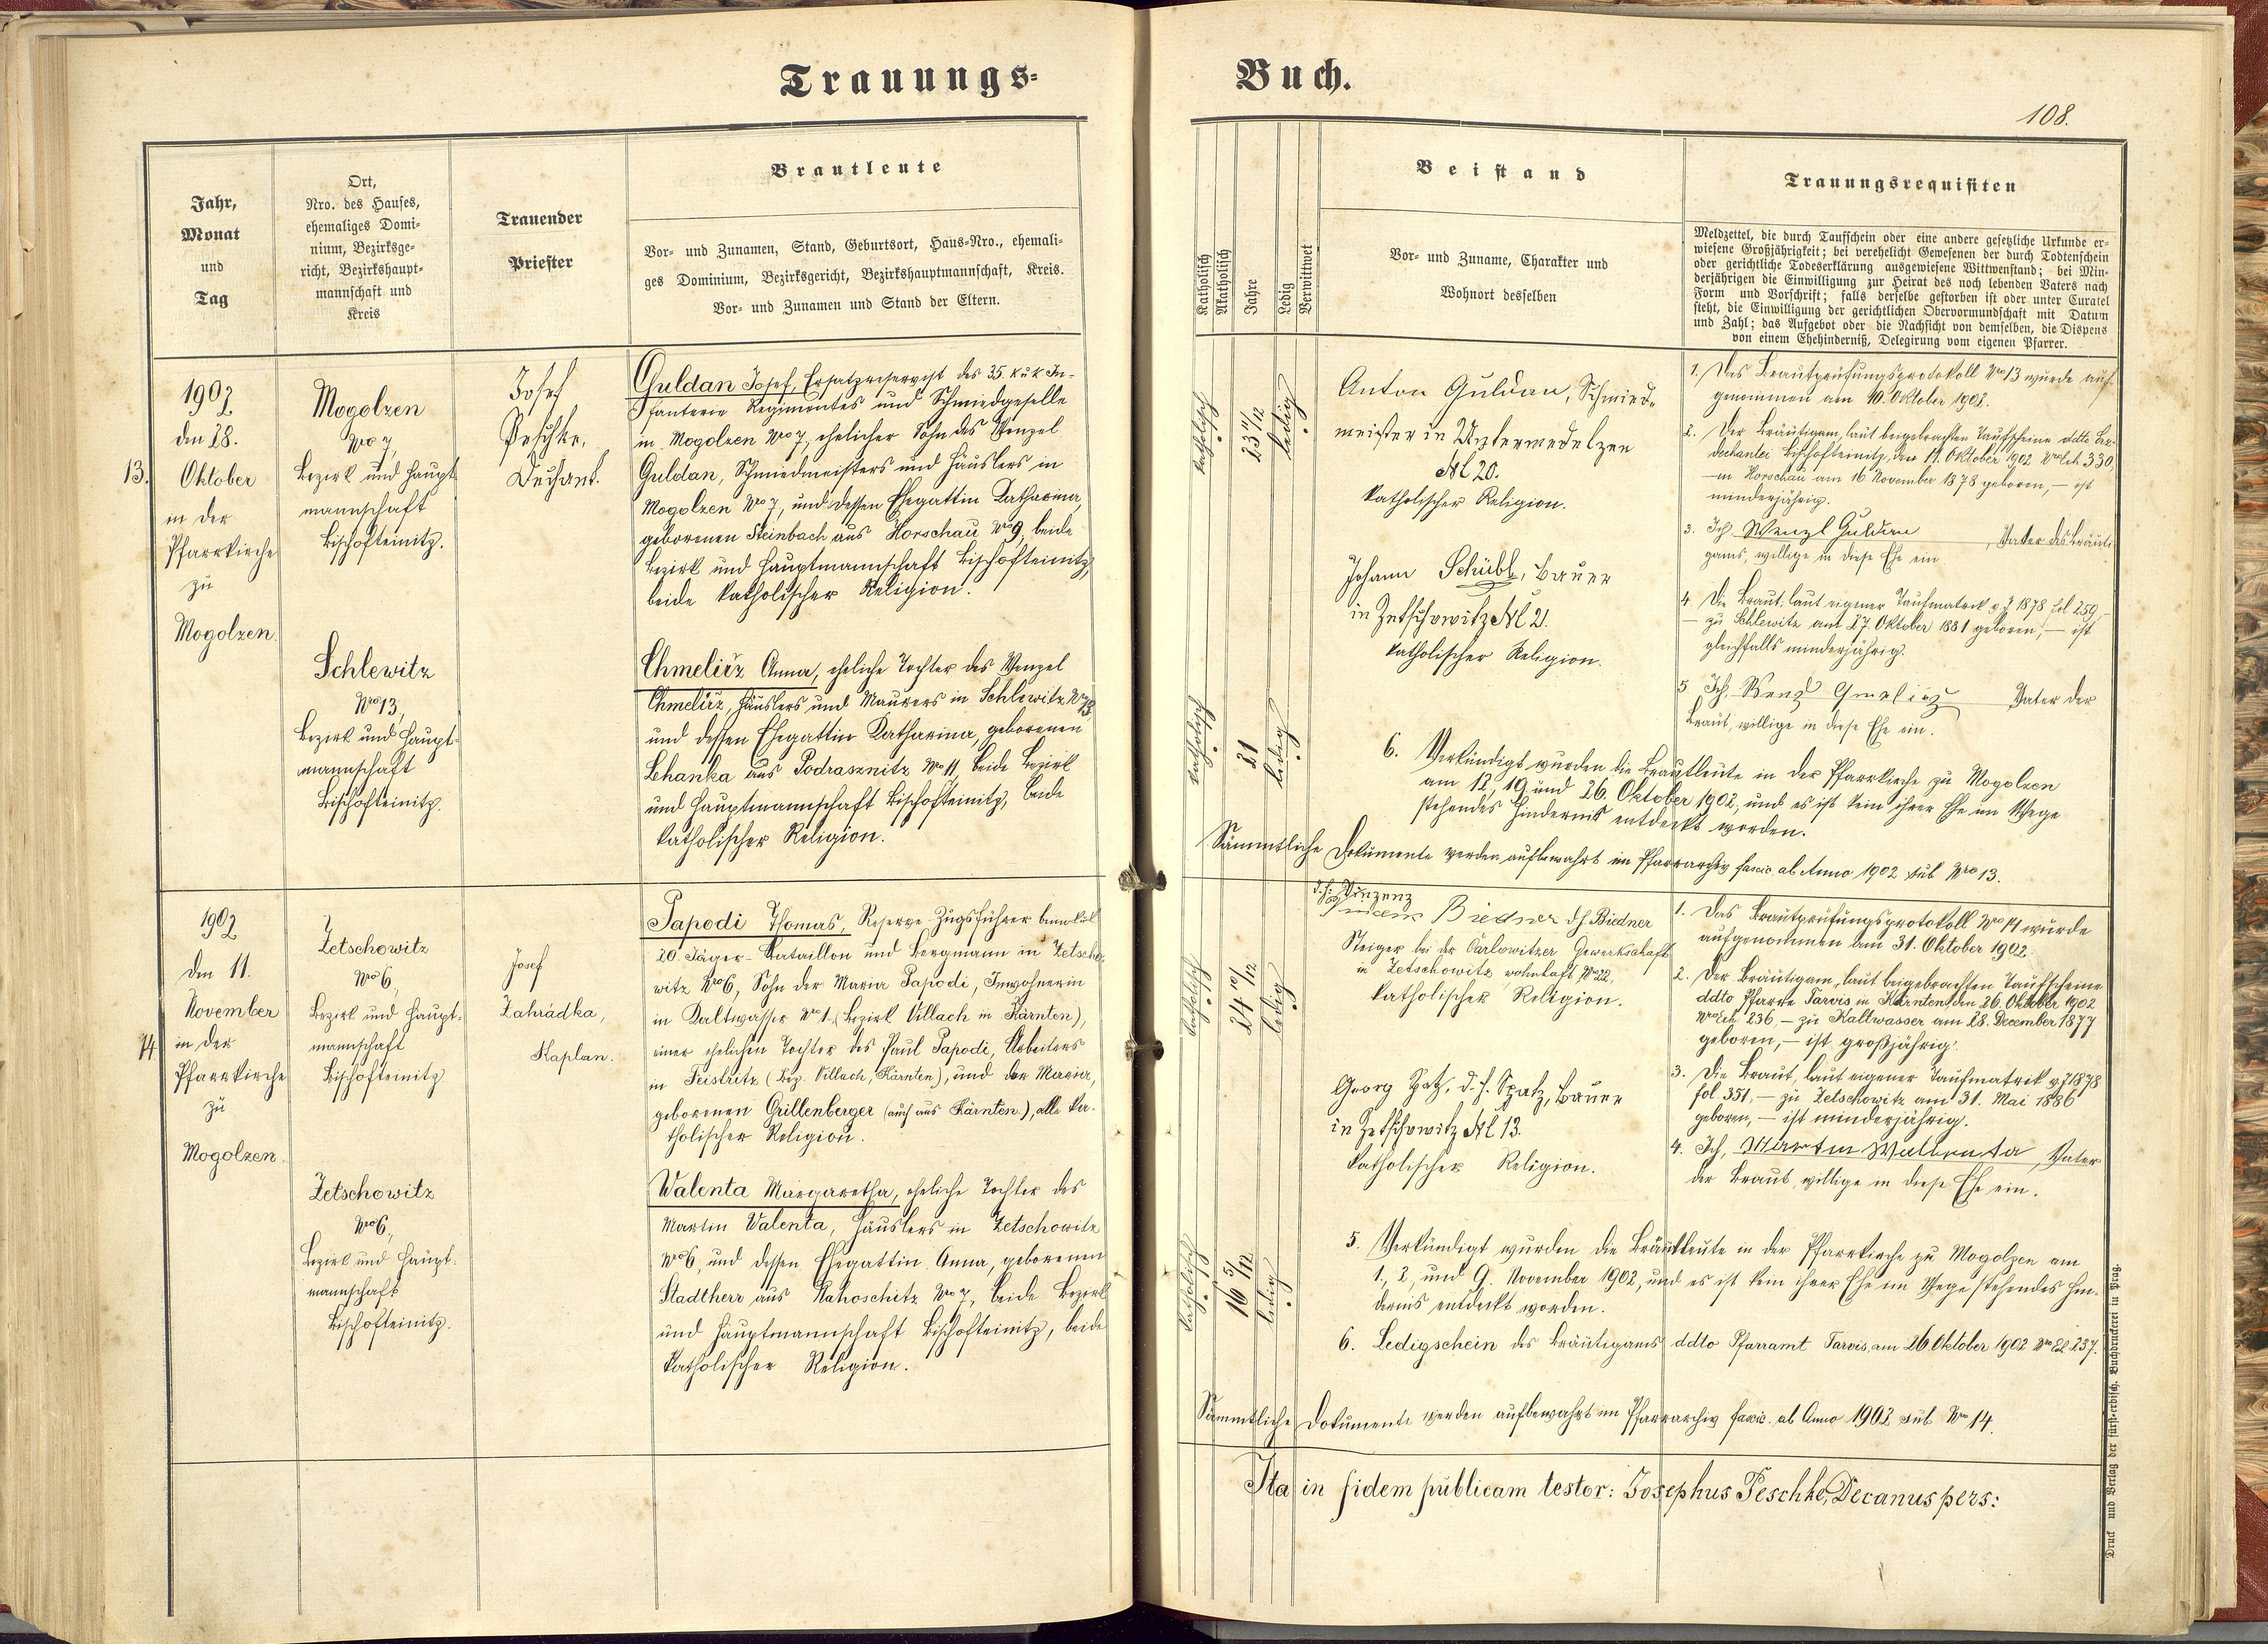 Trauungs-
Buch.
108.
Jahr,
Monat
und
Tag
Ort,
Nro. des Hauses,
ehemaliges Domi-
nium, Bezirksge-
richt, Bezirkshaupt-
mannschaft und
Kreis
Trauender
Priester
Brautleute
Vor- und Zunamen, Stand, Geburtsort, Haus-Nro., ehemali-
ges Dominium, Bezirksgericht, Bezirkshauptmannschaft, Kreis.
Vor- und Zunamen und Stand der Eltern.
Katholisch
Akatholisch
Jahre
Ledig
Verwittwet
Beistand
Vor- und Zuname, Charakter und
Wohnort desselben
Trauungsrequisiten
Meldzettel, die durch Taufschein oder eine andere gesetzliche Urkunde er-
wiesene Großjährigkeit; bei verehelicht Gewesenen der durch Todtenschein
oder gerichtliche Todeserklärung ausgewiesene Wittwenstand; bei Min-
derjährigen die Einwilligung zur Heirat des noch lebenden Vaters nach
Form und Vorschrift; falls derselbe gestorben ist oder unter Curatel
steht, die Einwilligung der gerichtlichen Obervormundschaft mit Datum
und Zahl; das Aufgebot oder die Nachsicht von demselben, die Dispens
von einem Ehehinderniß, Delegirung vom eigenen Pfarrer.
13.
1902
den 28.
Oktober
in der
Pfarrkirche
zu
Mogolzen.
Mogolzen
Nro 7,
Bezirk und Haupt-
mannschaft
Bischofteinitz.
Schlewitz
Nro 13,
Bezirk und Haupt-
mannschaft
Bischofteinitz.
Josef
Peschke,
Dechant.
Guldan Josef, Ersatzreservist des 35. k u k In-
fanterie Regimentes und Schmiedgeselle
in Mogolzen Nro 7, ehelicher Sohn des Wenzel
Guldan, Schmiedmeisters und Häuslers in
Mogolzen Nro 7, und dessen Ehegattin Katharina,
geborenen Steinbach aus Horschau Nro 9, beide
Bezirk und Hauptmannschaft Bischofteinitz,
beide katholischer Religion.
Chmeliřz Anna, eheliche Tochter des Wenzel
Chmeliřz, Häuslers und Maurers in Schlewitz Nro 13,
und dessen Ehegattin Katharina, geborenen
Lhanka aus Podrasnitz Nro 11, beide Bezirk
und Hauptmannschaft Bischofteinitz, beide
katholischer Religion.
katholisch
23 11/12
ledig
katholisch
21
ledig
Anton Guldan, Schmied-
meister in Untermedelzen
No 20.
katholischer Religion.
Johann Schübl, Bauer
in Zetschowitz No 21.
katholischer Religion.
1. Das Brautprüfungsprotokoll Nro 13 wurde auf-
genommen am 10. Oktober 1902.
2. Der Bräutigam, laut beigebrachten Taufscheine ddto Erz-
dechantei Bischofteinitz, den 11. Oktober 1902 Nro Exh. 330,
— in Horschau am 16. November 1878 geboren, — ist
minderjährig.
3. Ich Wenzl Guldan, Vater des Bräuti-
gams, willige in diese Ehe ein
4. Die Braut, laut eigener Taufmatrik v. J. 1878 fol. 259,
— zu Schlewitz am 27. Oktober 1881 geboren, — ist
gleichfalls minderjährig.
5. Ich, Wenzl Gmelirz Vater der
Braut, willige in diese Ehe ein.
6. Verkündigt wurden die Brautleute in der Pfarrkirche zu Mogolzen
am 12., 19. und 26. Oktober 1902, und es ist kein ihrer Ehe im Wege
stehendes Hindernis entdeckt worden.
Sämmtliche Dokumente werden aufbewahrt im Pfarrarchiv fascic. ab Anno 1902 sub Nro 13.
14.
1902
den 11.
November
in der
Pfarrkirche
zu
Mogolzen.
Zetschowitz
Nro 6,
Bezirk und Haupt-
mannschaft
Bischofteinitz
Zetschowitz
Nro 6,
Bezirk und Haupt-
mannschaft
Bischofteinitz.
Josef
Zahrádka,
Kaplan.
Papodi Thomas, Reserve-Zugsführer beim k u k
20. Jäger-Bataillon und Bergmann in Zetscho-
witz Nro 6, Sohn der Maria Papodi, Inwohnerin
in Kaltwasser Nro 1, (Bezirk Villach in Kärnten),
einer ehelichen Tochter des Paul Papodi, Arbeiters
in Feistritz (Bez. Villach, Kärnten), und der Maria,
geborenen Grillenberger (auch aus Kärnten), alle ka-
tholischer Religion.
Valenta Margaretha, eheliche Tochter des
Martin Valenta, Häuslers in Zetschowitz
Nro 6, und dessen Ehegattin Anna, geborenen
Stadtherr aus Nahoschitz Nro 7, beide Bezirk
und Hauptmannschaft Bischofteinitz, beide
katholischer Religion.
katholisch
24 10/12
ledig
katholisch
16 5/12
ledig
d. h. Vinzenz
Biedner d. h. Biedner
Steiger bei der Carlowitzer Gewerkschaft
in Zetschowitz wohnhaft Nro 22,
katholischer Religion.
Georg Spatz, d. h. Spatz, Bauer
in Zetschowitz No 13.
katholischer Religion.
1. Das Brautprüfungsprotokoll Nro 14 wurde
aufgenommen am 31. Oktober 1902.
2. Der Bräutigam, laut beigebrachten Taufscheine
ddto Pfarre Tarvis in Kärnten den 26. Oktober 1902
Nro Exh. 236, — zu Kaltwasser am 28. December 1877
geboren, — ist großjährig.
3. Die Braut, laut eigener Taufmatrik v. J. 1878
fol. 351, — zu Zetschowitz am 31. Mai 1886
geboren, — ist minderjährig.
4. Ich, Martin Wallenta, Vater
der Braut, willige in diese Ehe ein.
5. Verkündigt wurden die Brautleute in der Pfarrkirche zu Mogolzen am
1., 2., und 9. November 1902, und es ist kein ihrer Ehe im Wege stehendes Hin-
dernis entdeckt worden.
6. Ledigschein des Bräutigams ddto Pfarramt Tarvis, am 26. Oktober 1902 Nro Exh 237.
Sämmtliche Dokumente werden aufbewahrt im Pfarrarchiv fascic. ab Anno 1902 sub Nro 14.
Ita in fidem publicam testor: Josephus Peschke, Decanus pers:
Druck und Verlag der fürst-erzbisch. Buchdruckerei in Prag.